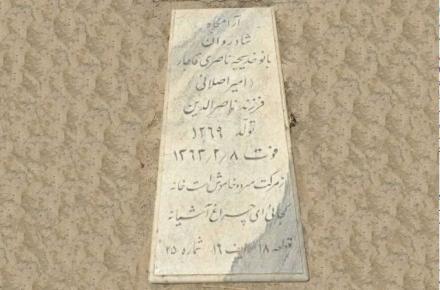 آرامگاه
شادروان
بانو خدیجه ناصری قاجار
(امیراصلانی)
فرزند ناصرالدین
تولد ۱۲۶۹
فوت ۱۳۶۳/۲/۸
ز مرگت سرد و خاموش است خانه
کجائی ای چراغ آشیانه
قطعه ۱۸ ردیف ۱۶ شماره ۲۵